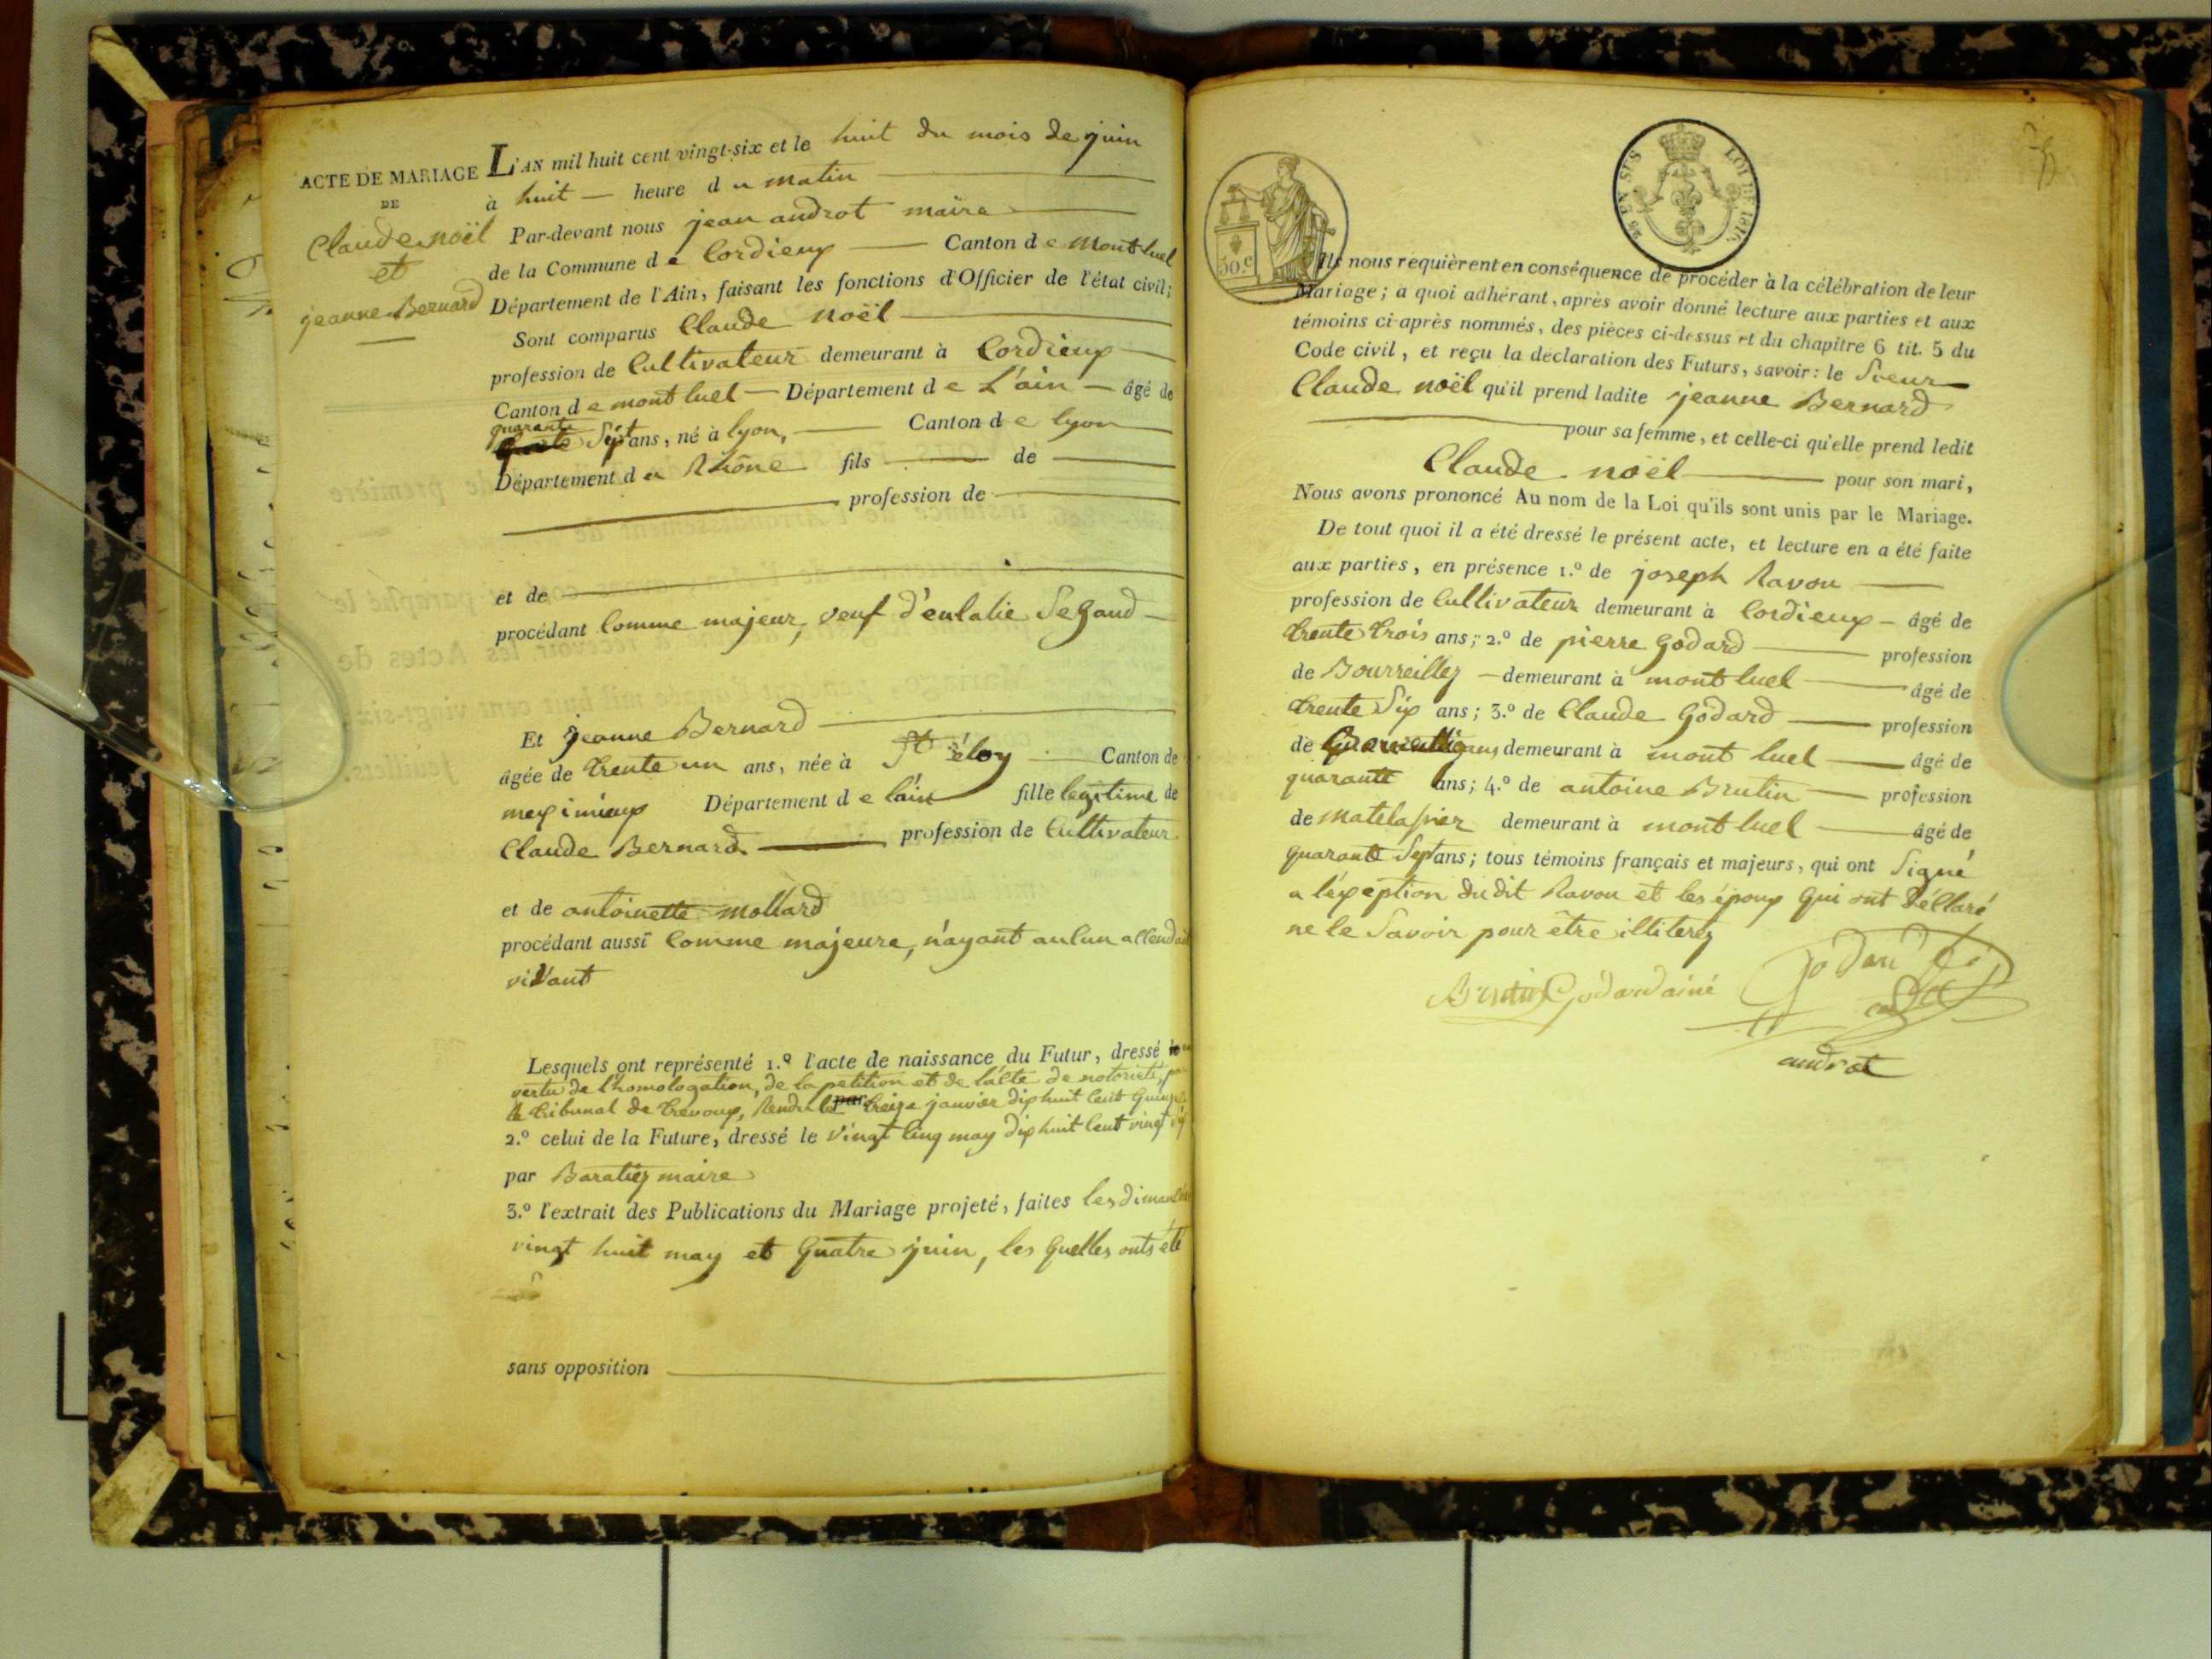 ACTE DE MARIAGE
DE
Claude noël
et
jeanne Bernard
L'AN mil huit cent vingt-six et le huit du mois de juin
à huit heure du matin
Par-devant nous jean androt maire
de la Commune de Cordieux Canton de Montluel
Département de l'Ain, faisant les fonctions d'Officier de l'état civil;
Sont comparus Claude noël
profession de Cultivateur demeurant à Cordieux
Canton de montluel Département de L'ain âgé de
quarante Sept ans, né à lyon, Canton de lyon
Département du Rhône fils de
profession de
et de
procédant Comme majeur, veuf d'eulalie Segaud
Et jeanne Bernard
âgée de trente un ans, née à St éloy Canton de
meximieux Département de lain fille legitime de
Claude Bernard profession de Cultivateur
et de antoinette mollard
procédant aussi Comme majeure, n'ayant aucun
vivant
Lesquels ont représenté 1.º l'acte de naissance du Futur, dressé
vertu de l'homologation, de la petition et de lacte de notorieté,
le tribunal de trevoux, Rendu le treize janvier dix huit Cent
2.º celui de la Future, dressé le vingt Cinq may dix huit Cent vingt six
par Baratier maire
3.º l'extrait des Publications du Mariage projeté, faites les
vingt huit may et Quatre juin, les Quelles onts été
sans opposition
50.c
EN SUS
LOI DE 1816
Ils nous requièrent en conséquence de procéder à la célébration de leur
Mariage; a quoi adhérant, après avoir donné lecture aux parties et aux
témoins ci-après nommés, des pièces ci-dessus et du chapitre 6 tit. 5 du
Code civil, et reçu la déclaration des Futurs, savoir: le Sieur
Claude noël qu'il prend ladite jeanne Bernard
pour sa femme, et celle-ci qu'elle prend ledit
Claude noël pour son mari,
Nous avons prononcé Au nom de la Loi qu'ils sont unis par le Mariage.
De tout quoi il a été dressé le présent acte, et lecture en a été faite
aux parties, en présence 1.º de joseph Ravou
profession de Cultivateur demeurant à Cordieux âgé de
trente trois ans; 2.º de pierre Godard profession
de Bourreillez demeurant à montluel âgé de
trente Six ans; 3.º de Claude Godard profession
de demeurant à mont luel âgé de
quarante ans; 4.º de antoine Brutin profession
de matelassier demeurant à mont luel âgé de
quarante Sept ans; tous témoins français et majeurs, qui ont Signé
a l'exception dudit Ravou et les époux Qui ont déllaré
ne le Savoir pour être illiterez
Brutin Godard ainé Godard
androt